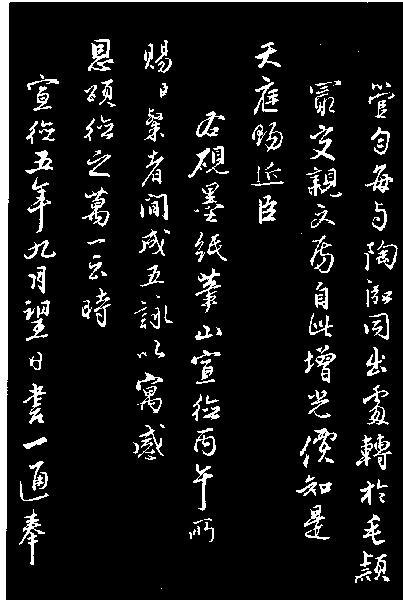 匀每与陶泓同出處轉於毛穎
最交親文房自此增光價知是
天庭賜近臣
右硯墨紙筆山宣德丙午所
賜臣粲者間成五詠以寓感
恩頌德之萬一云時
宣德五年九月望日書一通奉